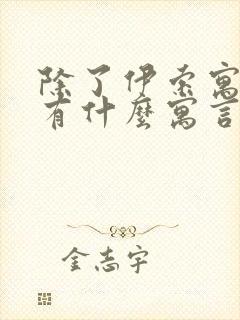 除了伊索寓
有什麼寓言
金志宇